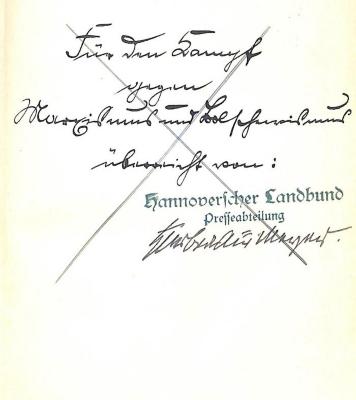 Für den Kampf
gegen
Marxismus und Bolschewismus
überreicht von:
Hannoverscher Landbund
Presseabteilung
Meyer.